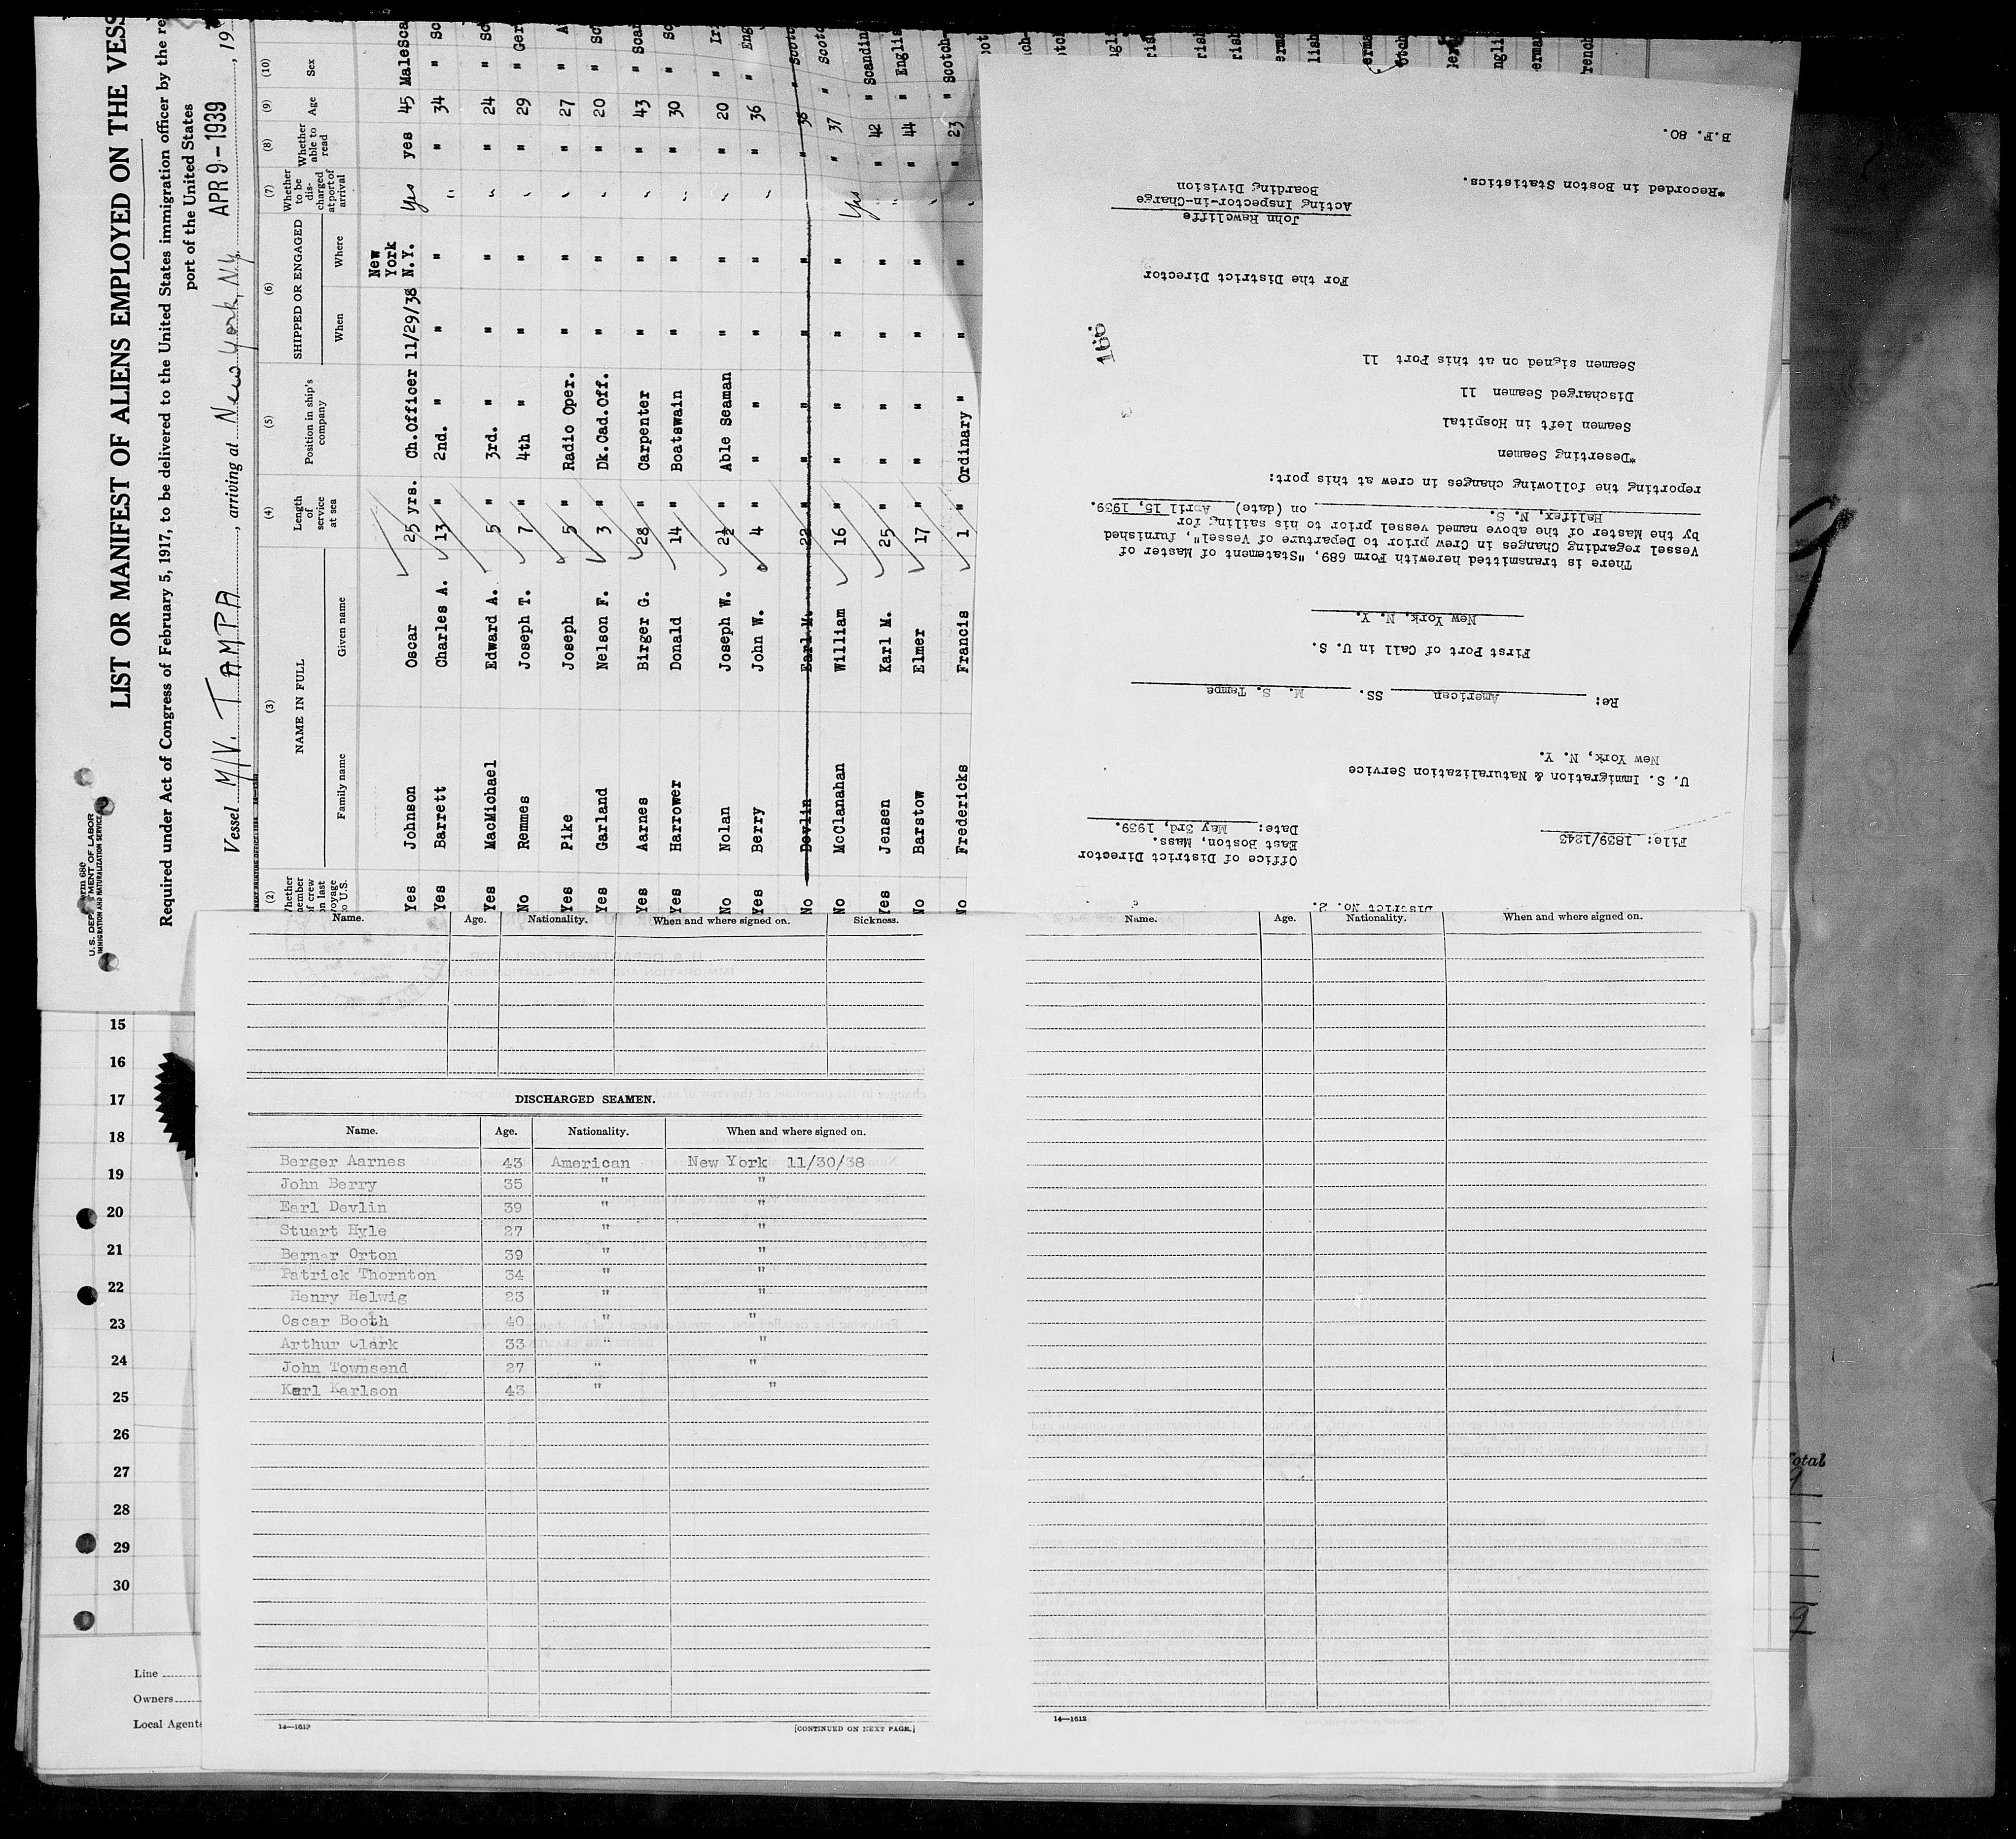 LIST OR MANIFEST OF ALIENS EMPLOYED ON THE VESS
Required under Act of Congress of February 5, 1917, to be delivered to the United States immigration officer by the re
port of the United States
Vessel M/V. TAMPA, arriving at New York, N.Y. APR 9 - 1939, 19
Form 680
U.S. DEPARTMENT OF LABOR
IMMIGRATION AND NATURALIZATION SERVICE
(2) (3) (4) (5) (6) (7) (8) (9) (10)
Whether member of crew on last voyage to U.S. NAME IN FULL Family name Given name Length of service at sea Position in ship's company SHIPPED OR ENGAGED When Where Whether to be discharged at port of arrival Whether able to read Age Sex
Yes Johnson Oscar 25 yrs. Ch.Officer 11/29/38 New York N.Y. Yes yes 45 Male Sca
Yes Barrett Charles A. 13 " 2nd. " " " " " 34 " Sc
Yes MacMichael Edward A. 5 " 3rd. " " " " " 24 " Sc
No Remmes Joseph T. 7 " 4th " " " " " 29 " Ger
Yes Pike Joseph 5 " Radio Oper. " " " " 27 " A
Yes Garland Nelson F. 3 " Dk.Cad.Off. " " " " 20 " Sc
Yes Aarnes Birger G. 28 " Carpenter " " " " 43 " Scan
Yes Harrower Donald 14 " Boatswain " " " " 30 " Sc
No Nolan Joseph W. 2½ " Able Seaman " " " " 20 " Ir
Yes Berry John W. 4 " " " " " " " 36 " Eng
No Devlin Earl M. 22 " " " " " " 38 " Scotc
No McClanahan William 16 " " " " " Yes " 37 " Scotc
Yes Jensen Karl M. 25 " " " " " " " 42 " Scandin
No Barstow Elmer 17 " " " " " " " 44 " Englis
No Fredericks Francis 1 " Ordinary " " " " " 23 " Scotch-
District No. 2.
Office of District Director
East Boston, Mass.
Date: May 3rd, 1939.
File: 1839/1243
U. S. Immigration & Naturalization Service
New York, N. Y.
Re: American SS. M. S. Tampa
First Port of Call in U. S.
New York, N. Y.
There is transmitted herewith Form 689, "Statement of Master of
Vessel regarding Changes in Crew prior to Departure of Vessel", furnished
by the Master of the above named vessel prior to his sailing for
Halifax, N. S. on (date) April 15, 1939.
reporting the following changes in crew at this port:
*Deserting Seamen
Seamen left in Hospital
Discharged Seamen 11
Seamen signed on at this Port 11
166
For the District Director
John Rawcliffe
Acting Inspector-in-Charge
Boarding Division
*Recorded in Boston Statistics.
B.F. 80.
Name. Age. Nationality. When and where signed on. Sickness.
DISCHARGED SEAMEN.
Name. Age. Nationality. When and where signed on.
Berger Aarnes 43 American New York 11/30/38
John Berry 35 " "
Earl Devlin 39 " "
Stuart Hyle 27 " "
Berner Orton 39 " "
Patrick Thornton 34 " "
Henry Helwig 23 " "
Oscar Booth 40 " "
Arthur Clark 33 " "
John Townsend 27 " "
Karl Karlson 43 " "
14—1612 [CONTINUED ON NEXT PAGE.]
Name. Age. Nationality. When and where signed on.
14—1612
15
16
17
18
19
20
21
22
23
24
25
26
27
28
29
30
Line
Owners
Local Agents
Total
9